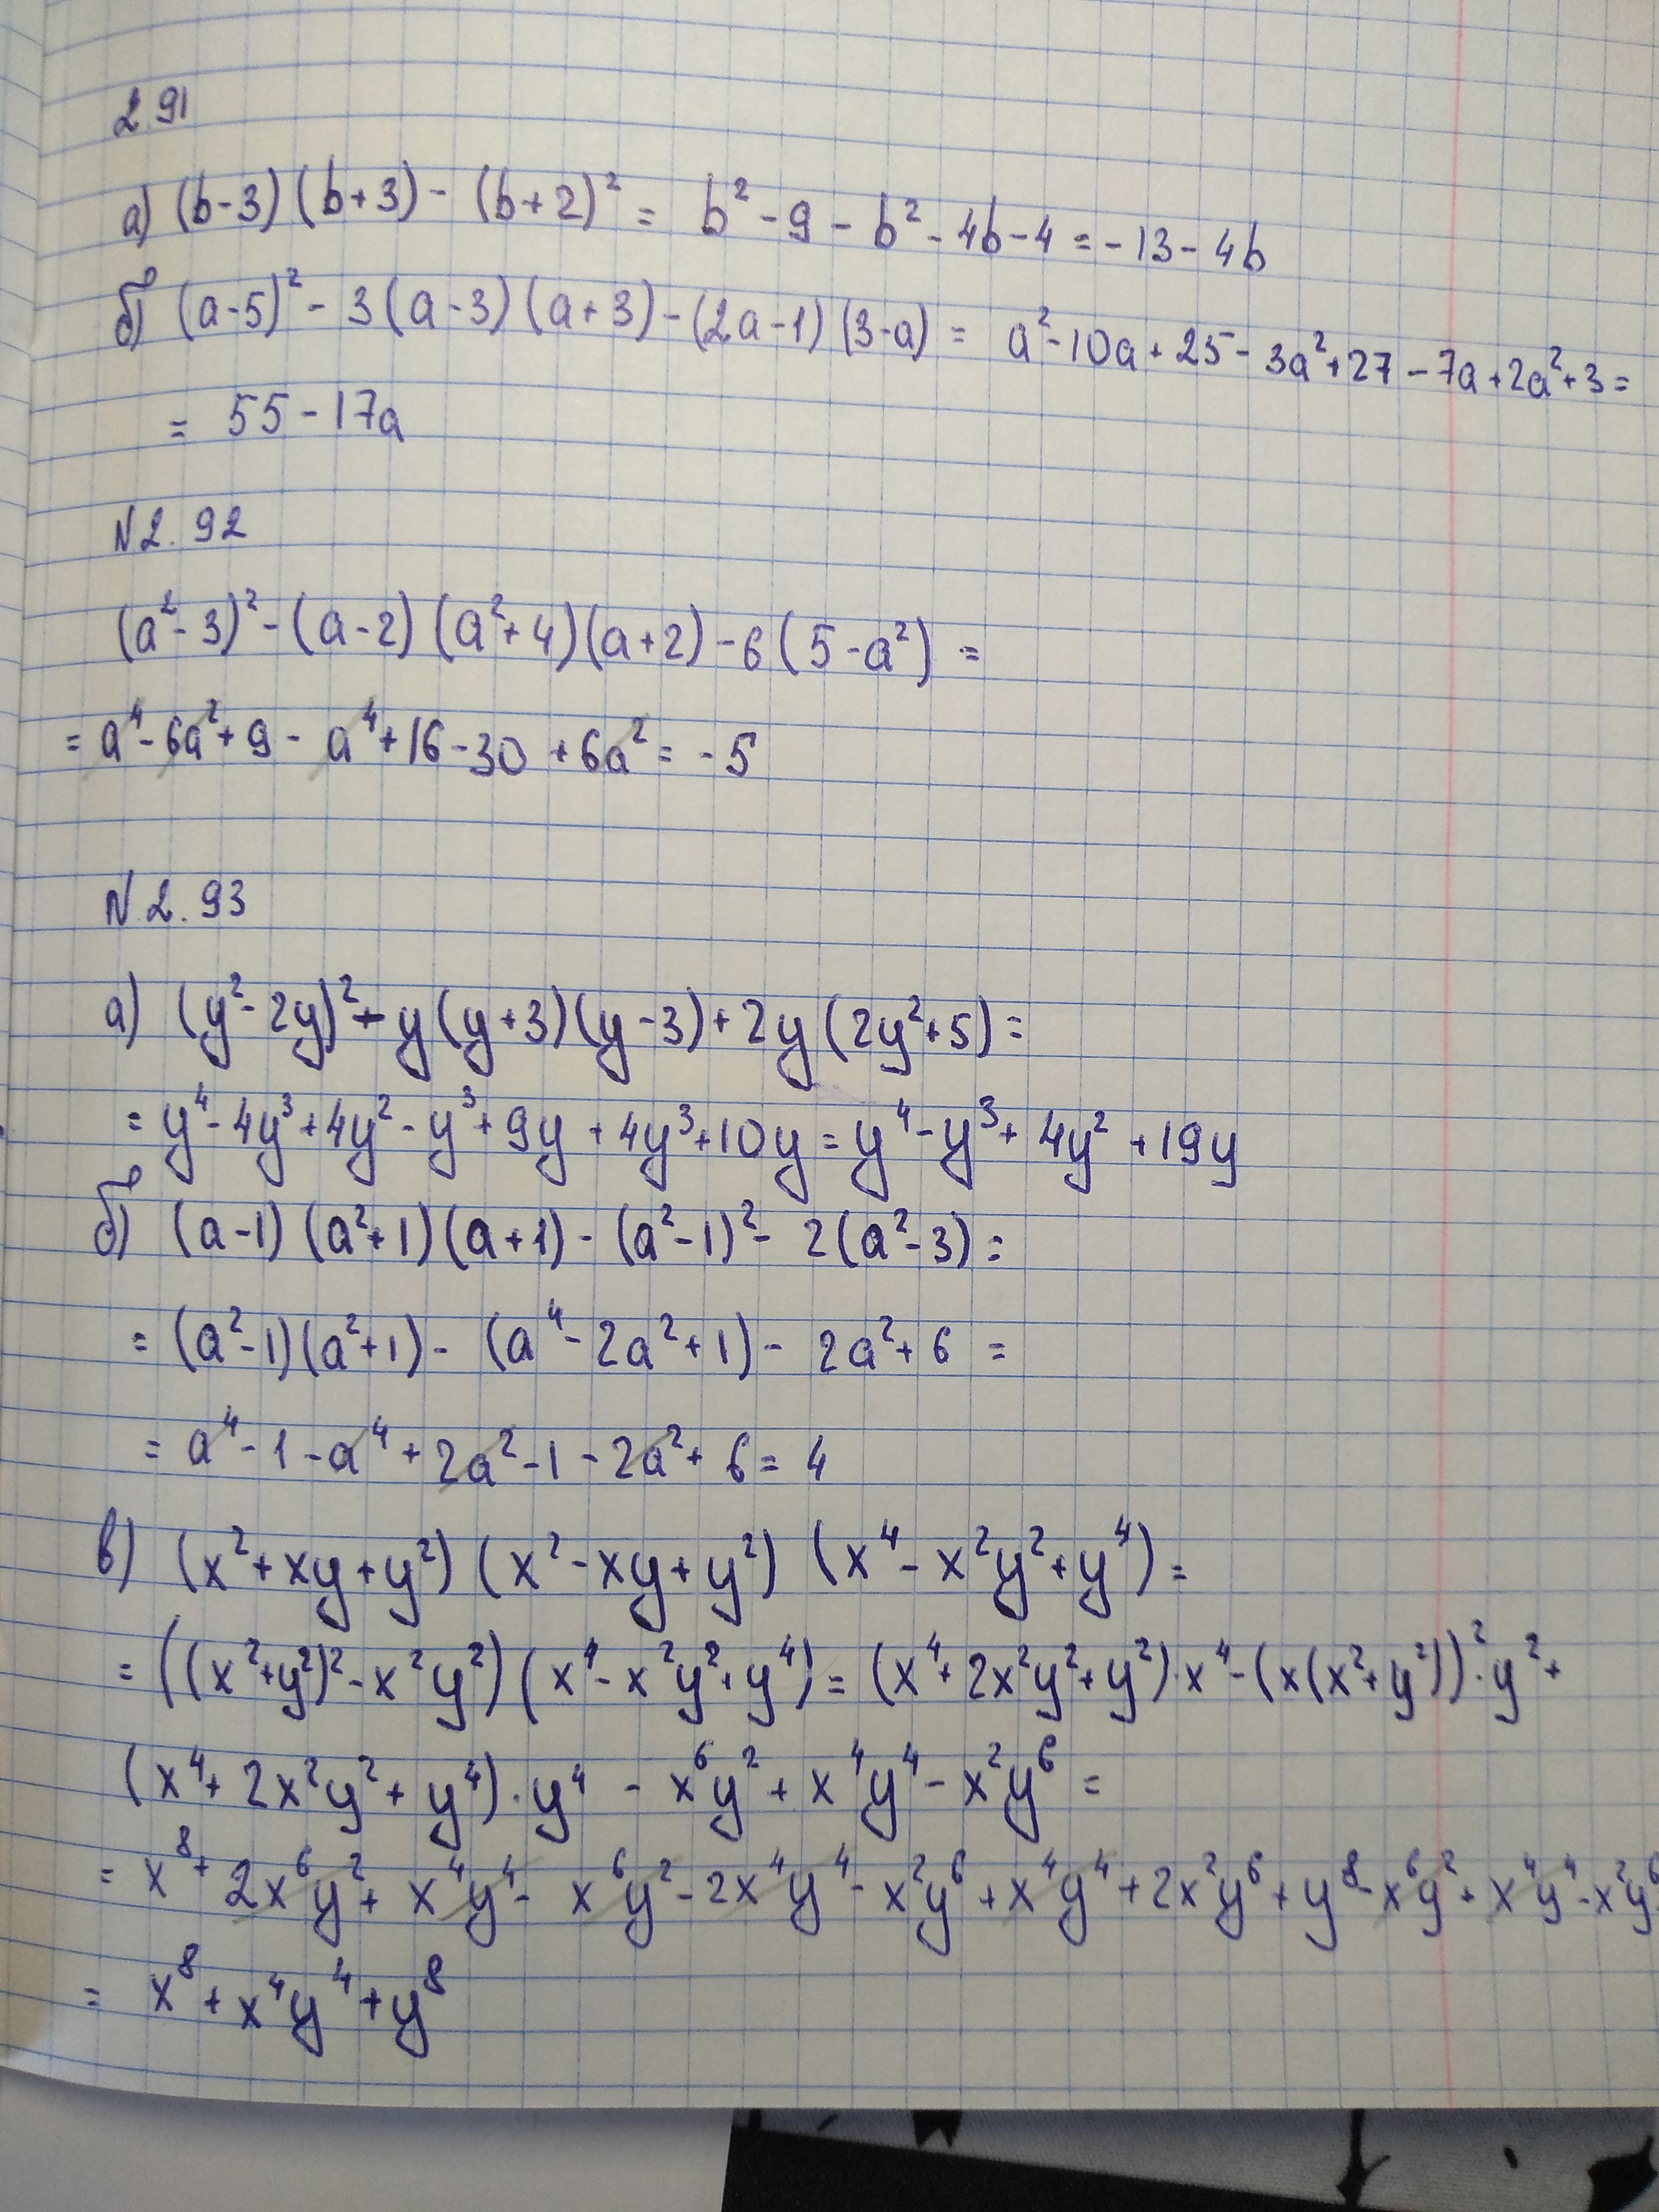 2.91
а) (b-3)(b+3) - (b+2)² = b² - 9 - b² - 4b - 4 = -13 - 4b
б) (a-5)² - 3(a-3)(a+3) - (2a-1)(3-a) = a² - 10a + 25 - 3a² + 27 - 7a + 2a² + 3 =
= 55 - 17a
N2.92
(a² - 3)² - (a-2)(a²+4)(a+2) - 6(5-a²) =
= a⁴ - 6a² + 9 - a⁴ + 16 - 30 + 6a² = -5
N2.93
а) (y² - 2y)² - y(y+3)(y-3) + 2y(2y²+5) =
= y⁴ - 4y³ + 4y² - y³ + 9y + 4y³ + 10y = y⁴ - y³ + 4y² + 19y
б) (a-1)(a²+1)(a+1) - (a²-1)² - 2(a²-3) =
= (a²-1)(a²+1) - (a⁴ - 2a² + 1) - 2a² + 6 =
= a⁴ - 1 - a⁴ + 2a² - 1 - 2a² + 6 = 4
в) (x² + xy + y²)(x² - xy + y²)(x⁴ - x²y² + y⁴) =
= ((x²+y²)² - x²y²)(x⁴ - x²y² + y⁴) = (x⁴ + 2x²y² + y²)·x⁴ - (x(x²+y²))²·y² +
(x⁴ + 2x²y² + y⁴)·y⁴ - x⁶y² + x⁴y⁴ - x²y⁶ =
= x⁸ + 2x⁶y² + x⁴y⁴ - x⁶y² - 2x⁴y⁴ - x²y⁶ + x⁴y⁴ + 2x²y⁶ + y⁸ - x⁶y² + x⁴y⁴ - x²y⁶
= x⁸ + x⁴y⁴ + y⁸